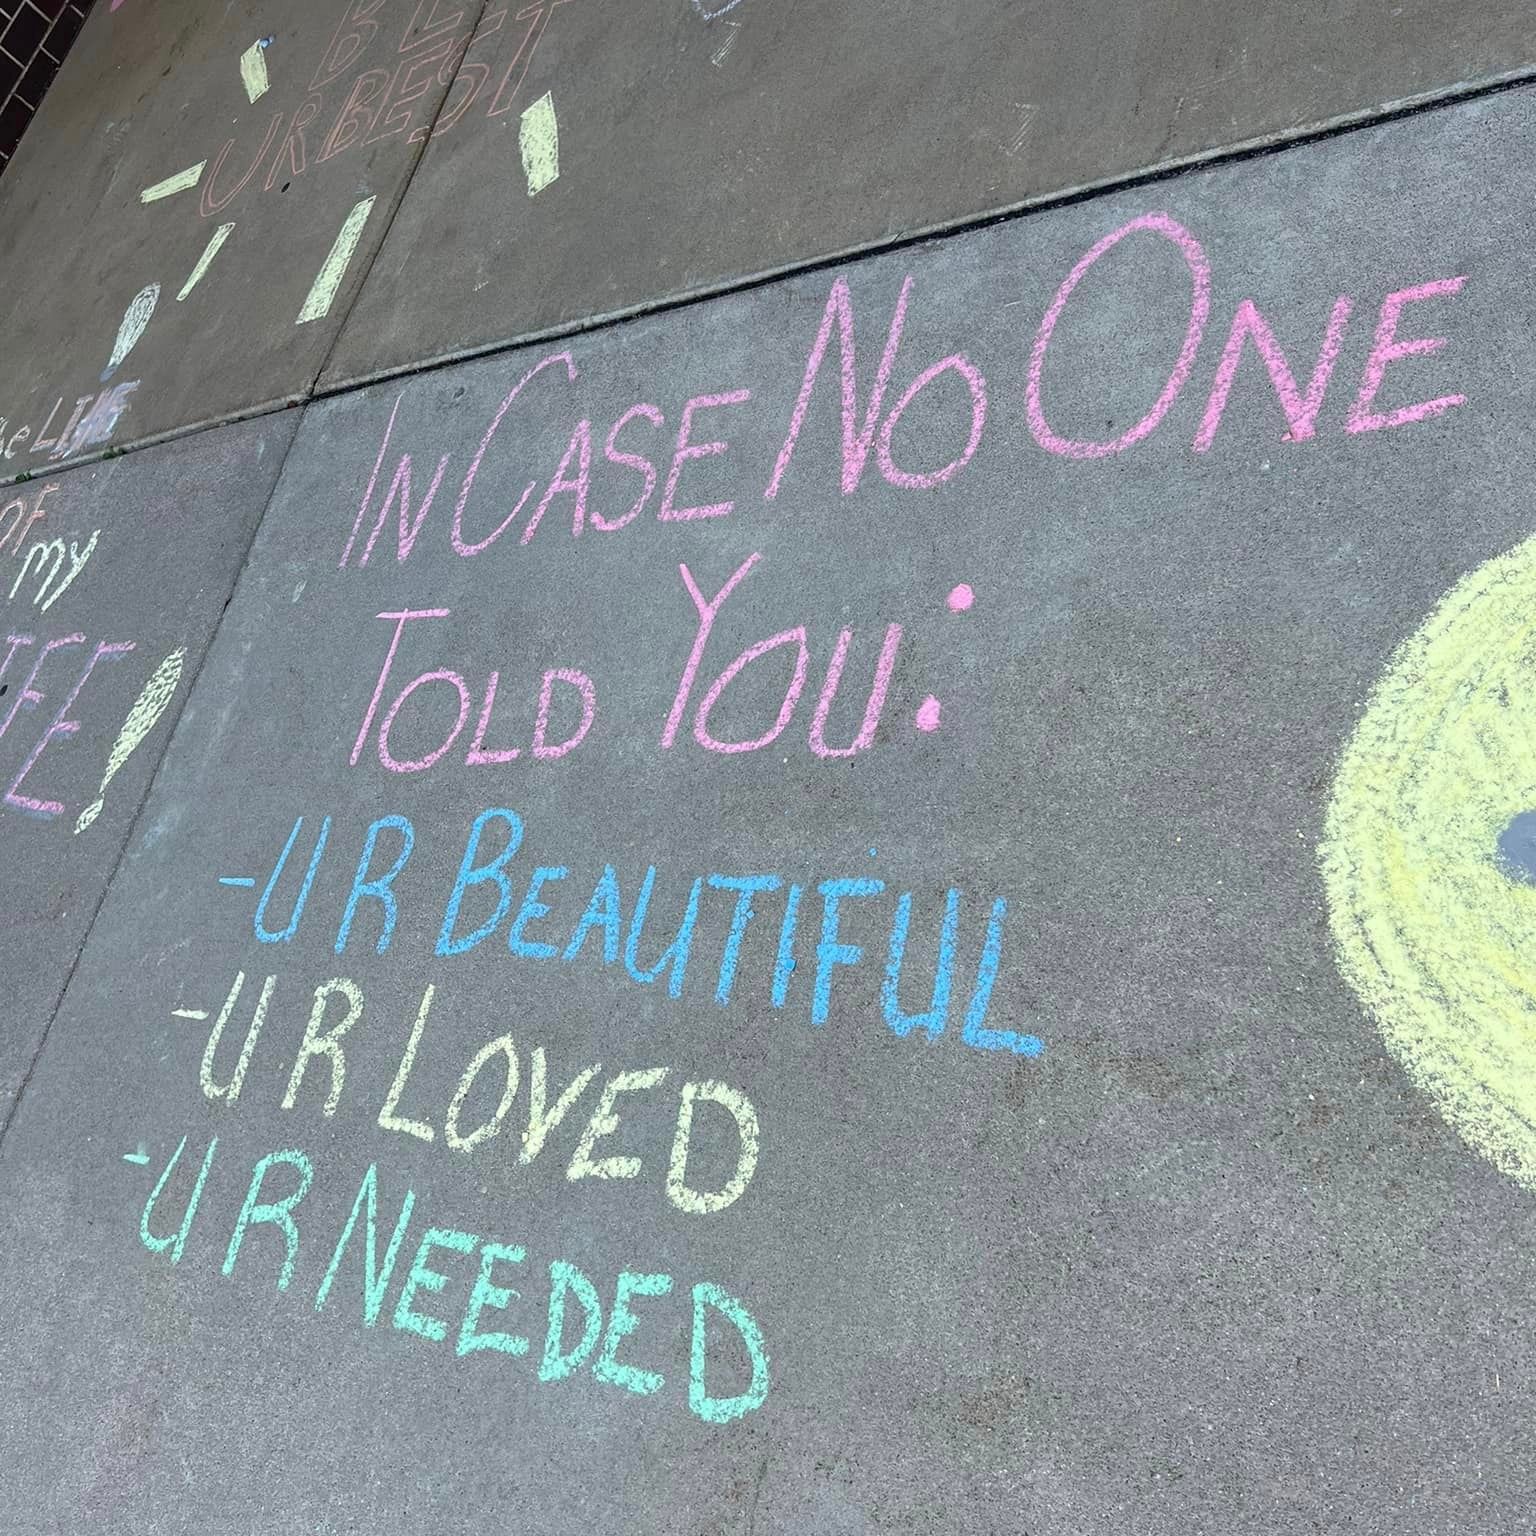 BE
UR BEST
LINE
OF
my
IN CASE NO ONE
TOLD YOU:
-U R BEAUTIFUL
-U R LOVED
-U R NEEDED